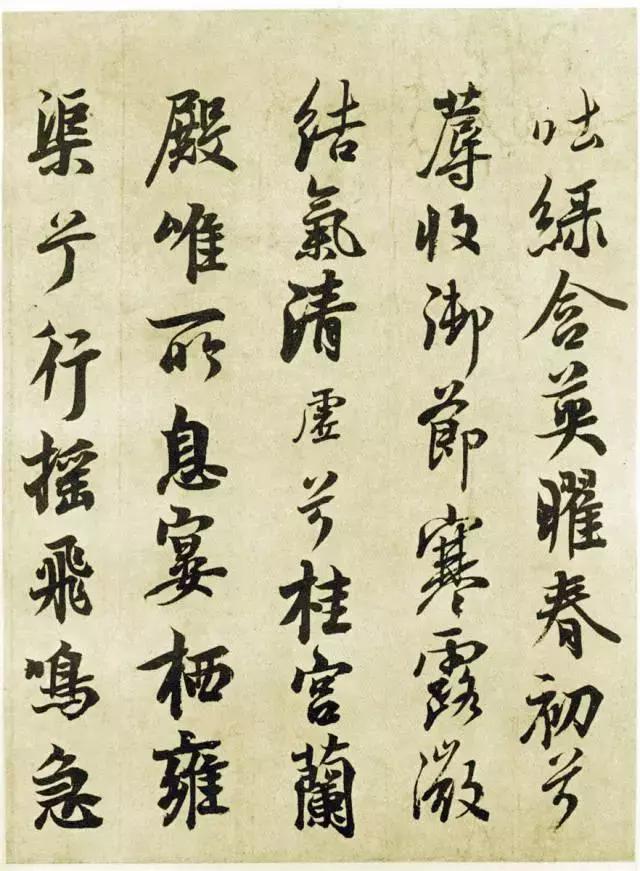 吐綠含英曜春初兮
蓐收御節寒露微
結氣清虛兮桂宮蘭
殿唯所息宴栖雍
渠兮行摇飛鳴急